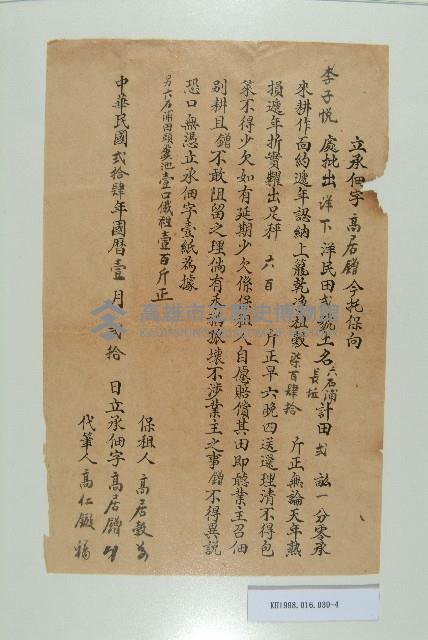 立承佃字高居鐕今托保向
李子悦處批出洋下洋民田弍號土名六石浦長坵計田弍畝一分零承
來耕作面約遞年認納上籠乾净租穀柒百肆拾斤正無論天年熟
損遞年折實糶出足秤六百斤正早六晚四送還理清不得包
萊不得少欠如有延期少欠係保租人自愿賠償其田即聽業主召佃
别耕且鐕不敢阻留之理倘有丢荒崩壞不涉業主之事鐕不得異説
恐口無憑立承佃字壹紙為據
另六石浦田頭糞池壹口儎租壹百斤正
中華民國弍拾肆年國曆壹月弍拾日立承佃字高居鐕
保租人高居毅
代筆人高仁鏃
高雄市立歷史博物館
KAOHSIUNG MUSEUM OF HISTORY
KH1988.016.039-4